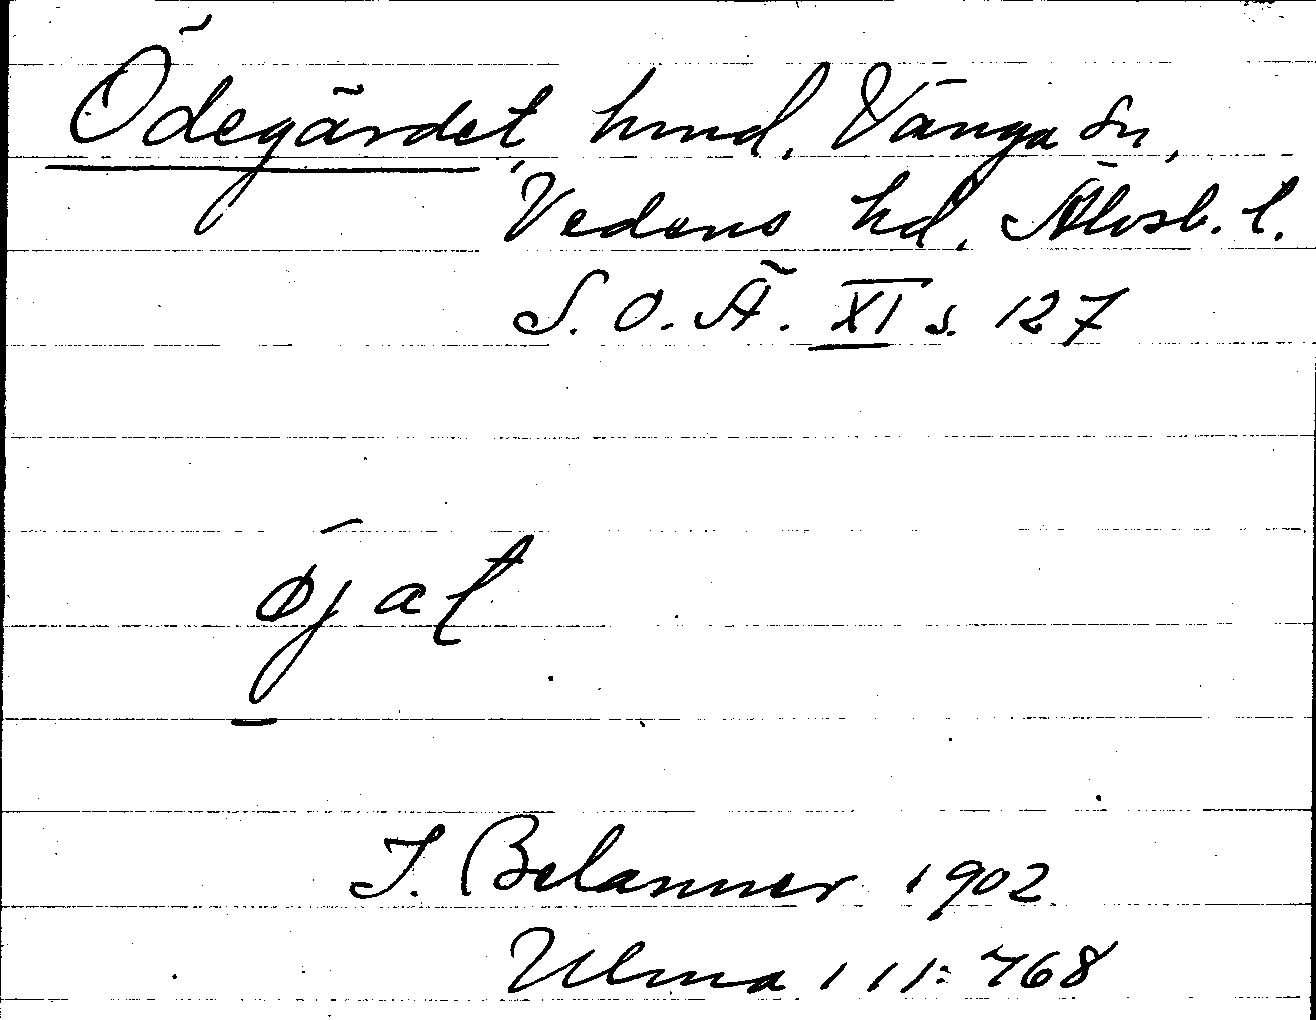 Ödegärdet, hmd. Vånga sn,
Vedens hd, Älvsb. l.
S. O. Ä. XI s. 127
øjat
J. Belanner 1902
Ulma 111:768